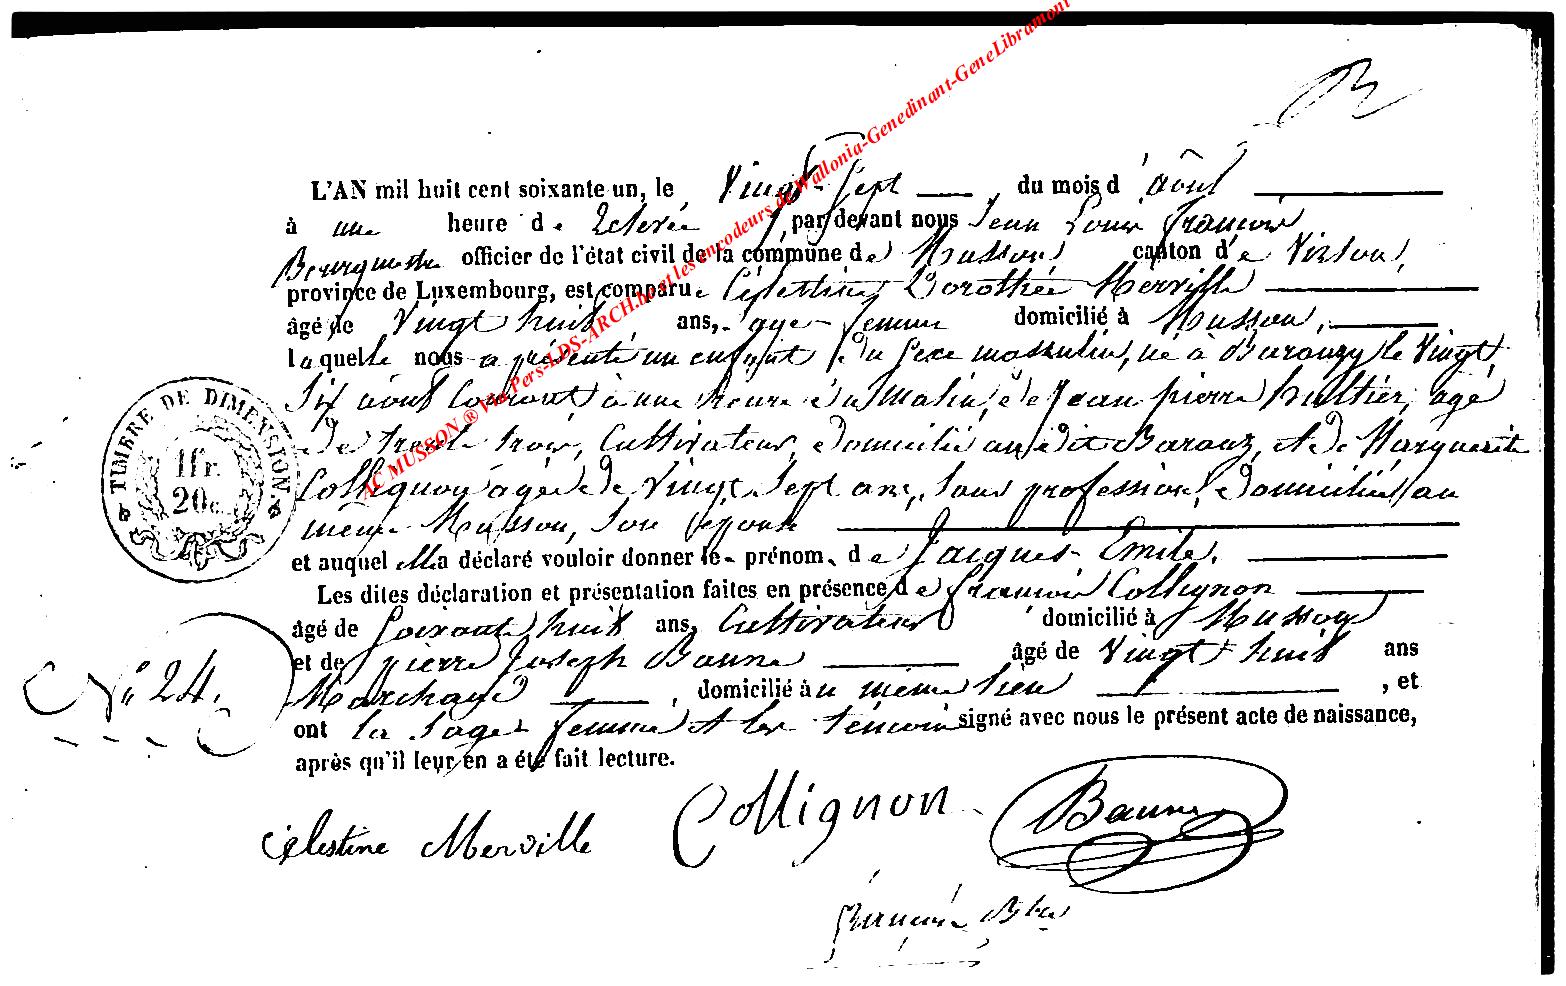 L'AN mil huit cent soixante un, le Vingt-Sept du mois d'août
à une heure de relevée par devant nous Jean Louis François
Bourgmestre officier de l'état civil de la commune de Musson canton de Virton,
province de Luxembourg, est comparue Célestine Dorothée Merville
âgé de Vingt huit ans, sage-femme domicilié à Musson,
laquelle nous a présenté un enfant du sexe masculin, né à Baranzy le Vingt
Six août Courant, à une heure du Matin, de Jean pierre hultier, agé
de trente trois, Cultivateur, domicilié au dit Baranz, et de Marguerite
Collignon agée de Vingt Sept ans, Sans profession, domiciliés au
même Musson, Son épouse
et auquel elle a déclaré vouloir donner le prénom de Jacques-Emile.
Les dites déclaration et présentation faites en présence de françois Collignon
âgé de Soixante huit ans, Cultivateur domicilié à Musson
et de pierre Joseph Baune âgé de Vingt huit ans
Marchand, domicilié au même lieu, et
ont la Sage femme et les témoins signé avec nous le présent acte de naissance,
après qu'il leur en a été fait lecture.
TIMBRE DE DIMENSION.
1fr.
20c.
N° 24.
Célestine Merville Collignon Baune
AC MUSSON ® Via Pers-LDS-ARCH.be et les encodeurs de Wallonia-Genedinant-GeneLibramont